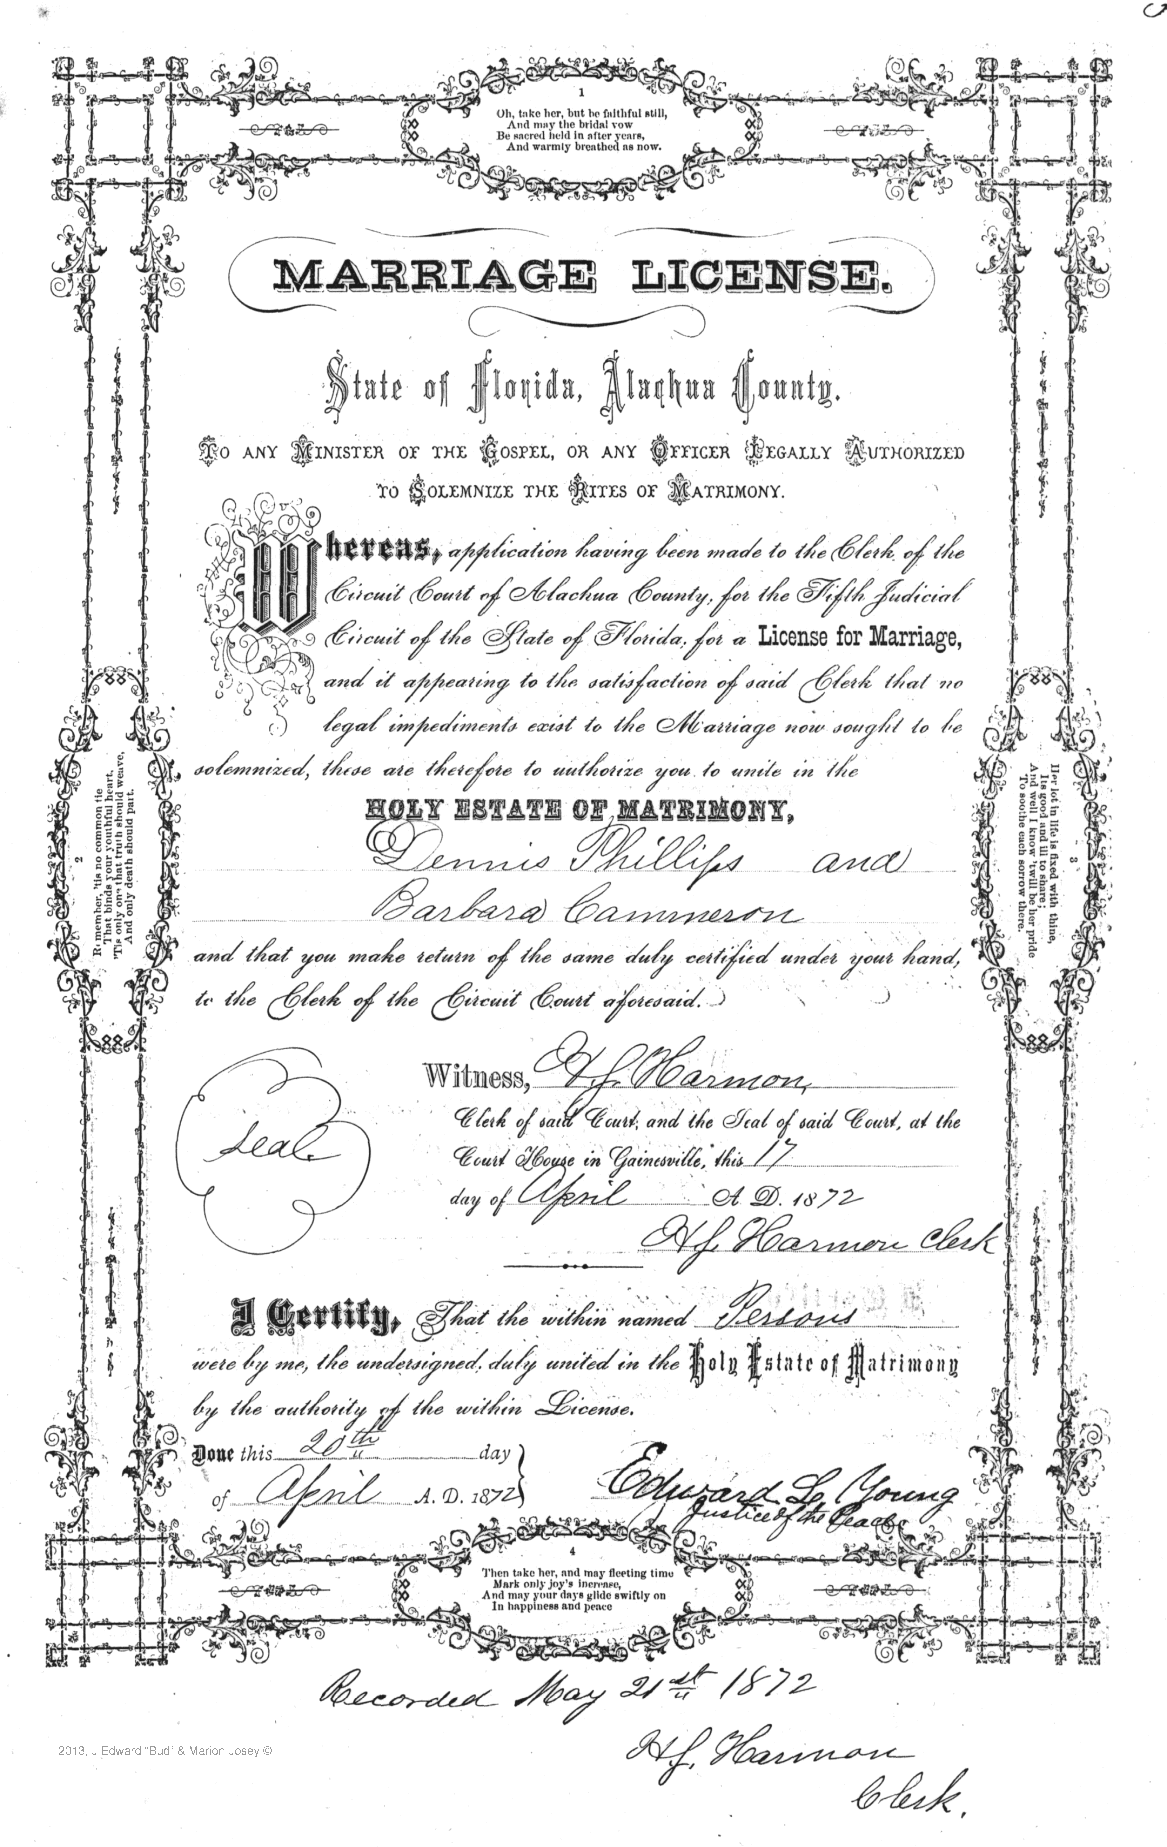 1
Oh, take her, but be faithful still,
And may the bridal vow
Be sacred held in after years,
And warmly breathed as now.
MARRIAGE LICENSE.
State of Florida, Alachua County.
TO ANY MINISTER OF THE GOSPEL, OR ANY OFFICER LEGALLY AUTHORIZED
TO SOLEMNIZE THE RITES OF MATRIMONY.
Whereas, application having been made to the Clerk of the
Circuit Court of Alachua County, for the Fifth Judicial
Circuit of the State of Florida, for a License for Marriage,
and it appearing to the satisfaction of said Clerk that no
legal impediments exist to the Marriage now sought to be
solemnized, these are therefore to authorize you to unite in the
HOLY ESTATE OF MATRIMONY,
Dennis Phillips and
Barbara Cammeron
and that you make return of the same duly certified under your hand,
to the Clerk of the Circuit Court aforesaid.
2
Remember, 'tis no common tie
That binds your youthful heart,
'Tis only one that truth should weave,
And only death should part.
3
Her lot in life is fixed with thine,
Its good and ill to share;
And well I know 'twill be her pride
To soothe each sorrow there.
Seal
Witness, H.J. Harmon,
Clerk of said Court, and the Seal of said Court, at the
Court House in Gainesville, this 17
day of April A. D. 1872
H.J. Harmon Clerk
I Certify, That the within named Persons
were by me, the undersigned, duly united in the Holy Estate of Matrimony
by the authority of the within License.
Done this 20th day
of April A. D. 1872
Edward L. Young
Justice of the Peace
4
Then take her, and may fleeting time
Mark only joy's increase,
And may your days glide swiftly on
In happiness and peace
Recorded May 21st 1872
H.J. Harmon
Clerk.
2013, J Edward "Bud" & Marion Josey ©